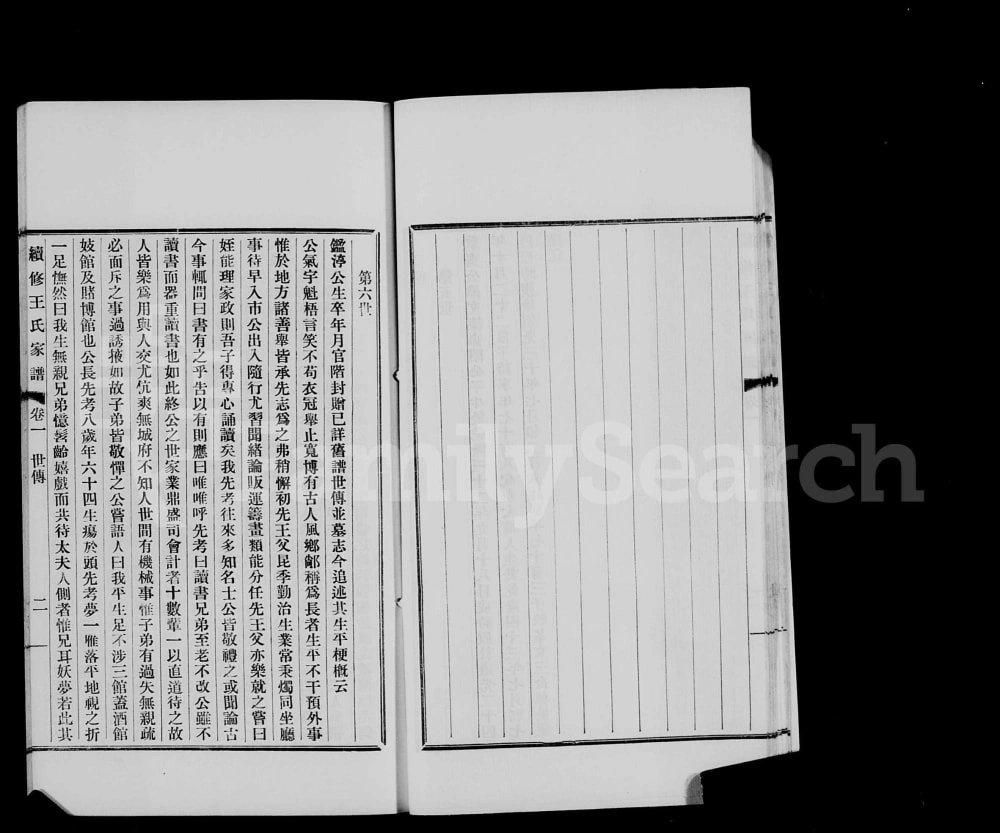 第六世
鑑淳公生卒年月官階封贈已詳舊譜世傳並墓志今追述其生平梗概云
公氣宇魁梧言笑不苟衣冠舉止寬博有古人風鄉鄰稱為長者生平不干預外事
惟於地方諸善舉皆承先志為之弗稍懈初先王父昆季勤治生業常秉燭同坐廳
事待早入市公出入隨行尤習聞緒論販運籌畫類能分任先王父亦樂就之嘗曰
姪能理家政則吾子得專心誦讀矣我先考往來多知名士公皆敬禮之或聞論古
今事輒問曰書有之乎告以有則應曰唯唯呼先考曰讀書兄弟至老不改公雖不
讀書而器重讀書也如此終公之世家業鼎盛司會計者十數輩一以直道待之故
人皆樂為用與人交尤伉爽無城府不知人世間有機械事惟子弟有過失無親疏
必面斥之事過誘掖如故子弟皆敬憚之公嘗語人曰我平生足不涉三館蓋酒館
妓館及賭博館也公長先考八歲年六十四生瘍於頭先考夢一雁落平地視之折
一足憮然曰我生無親兄弟憶髫齡嬉戲而共待太夫人側者惟兄耳妖夢若此其
續修王氏家譜 卷一 世傳 二
FamilySearch